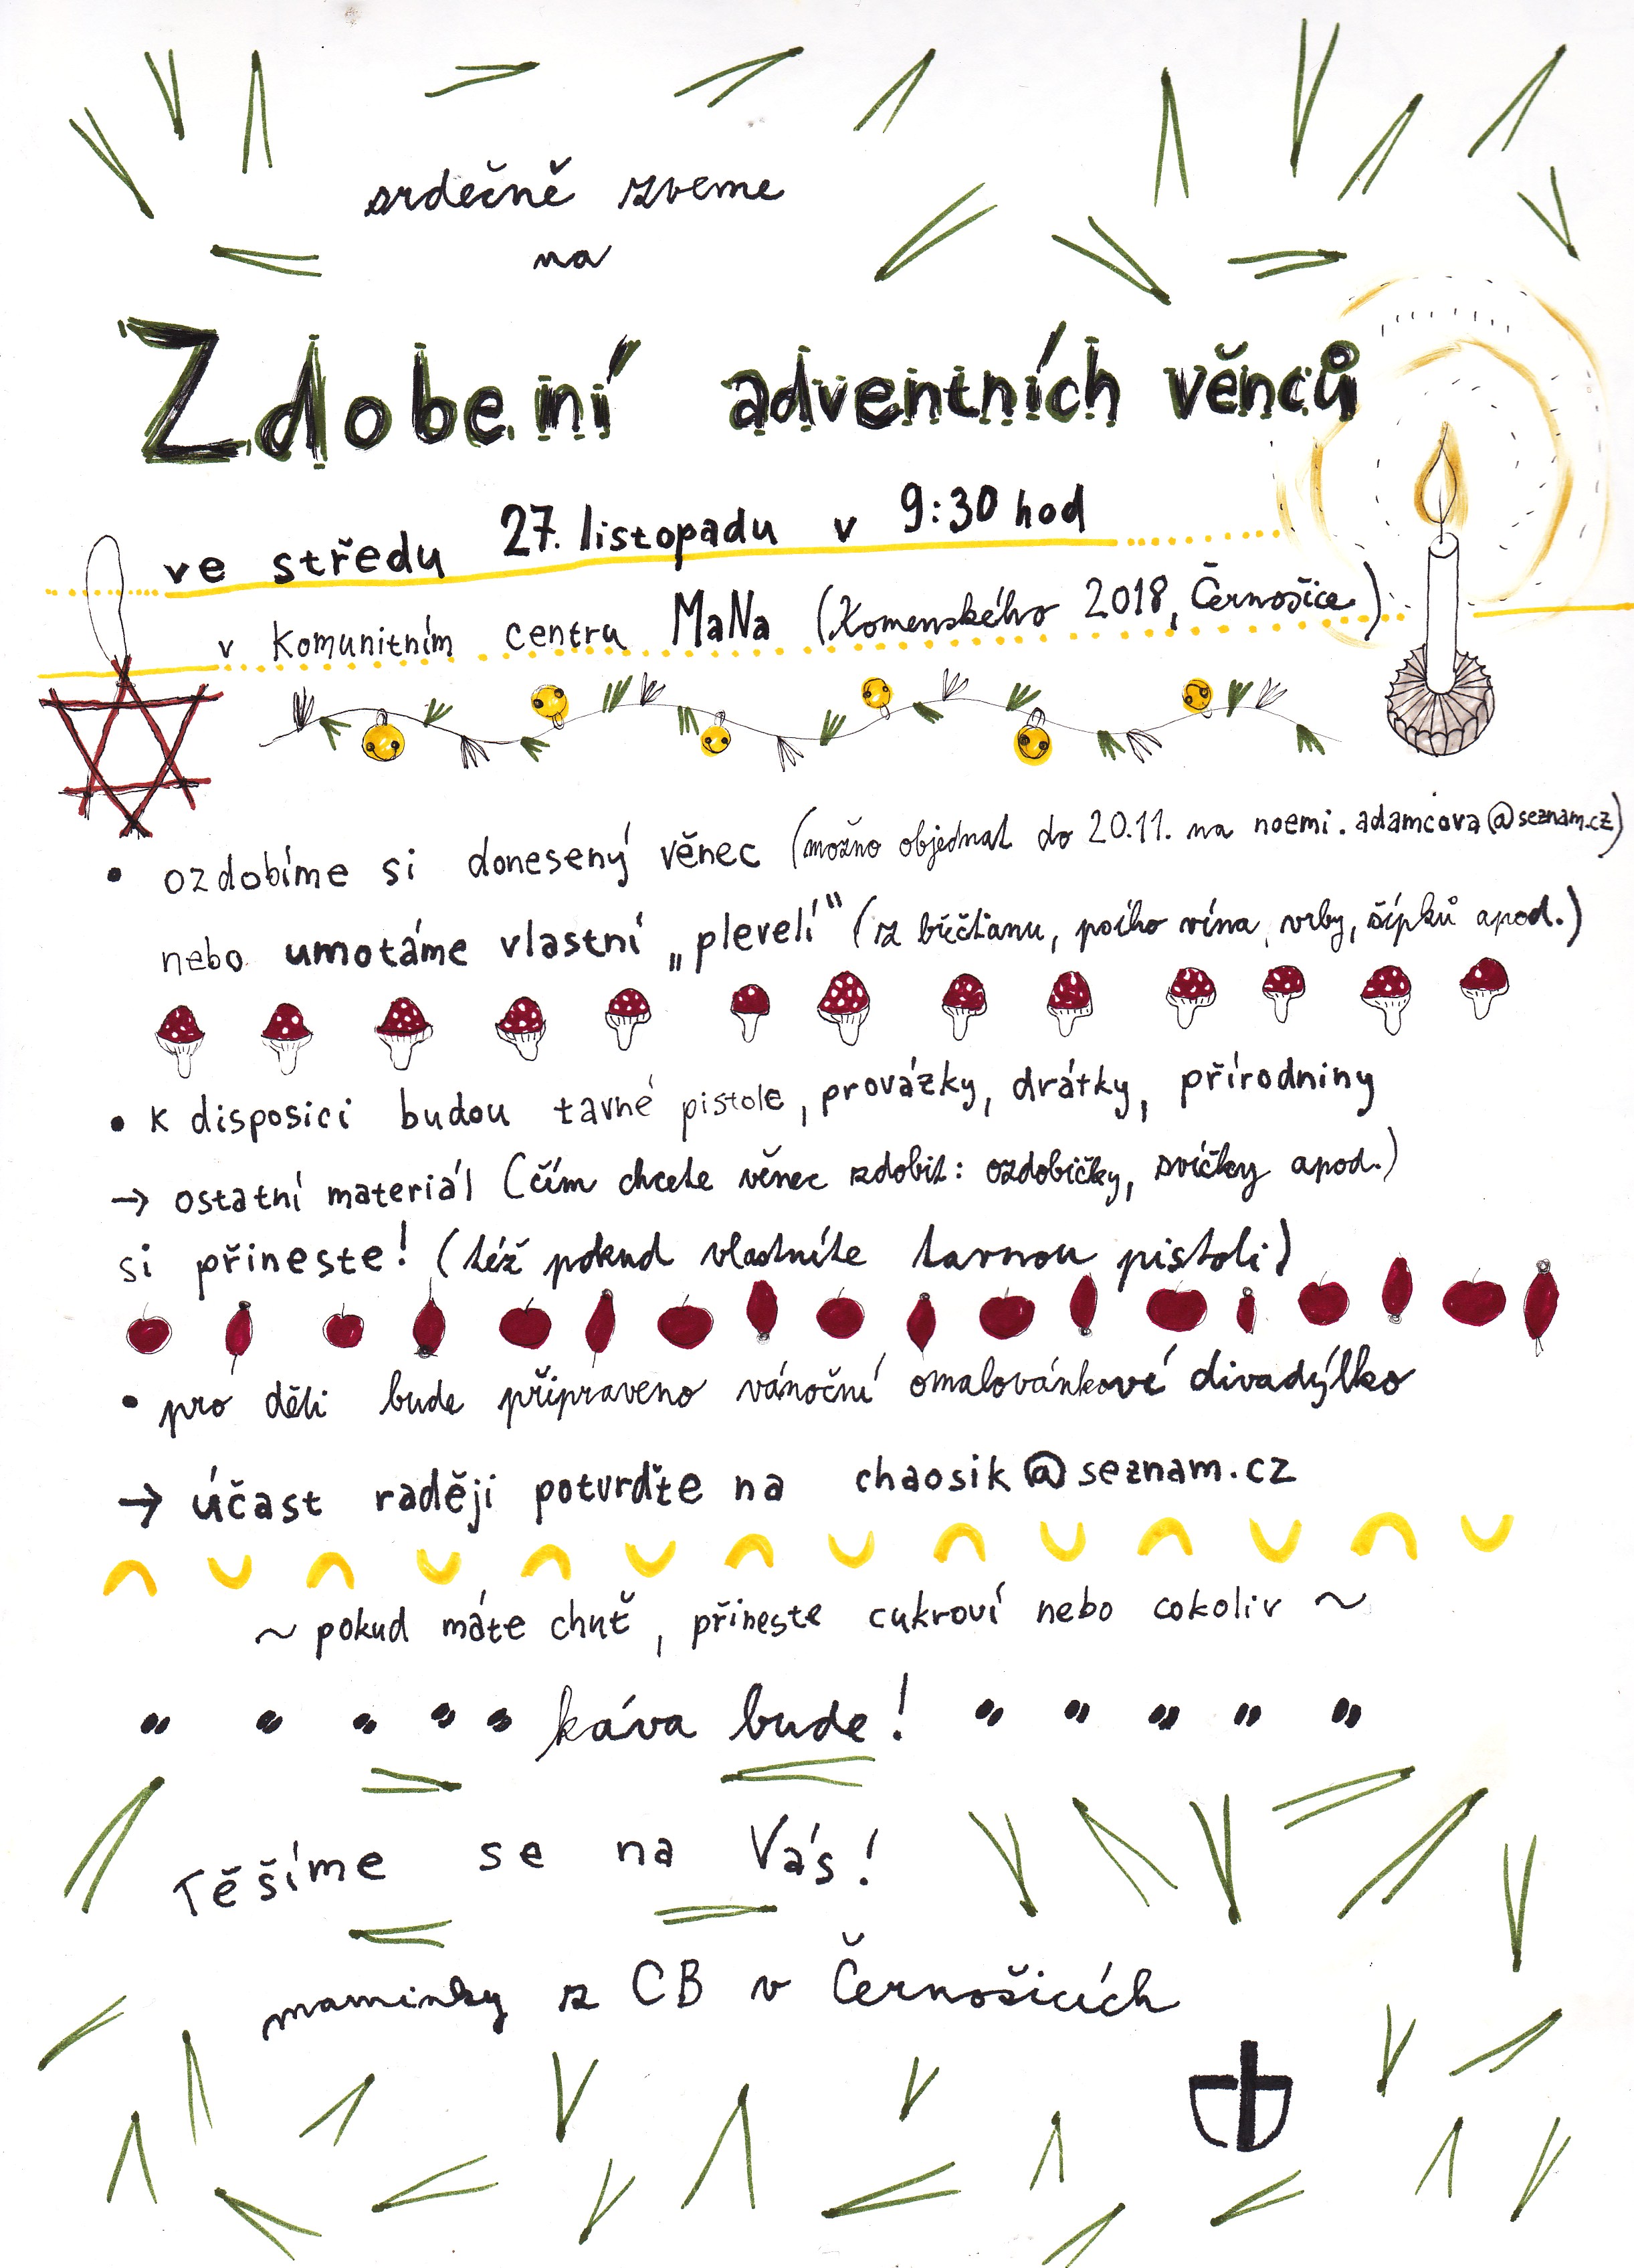 srdečně zveme
na
Zdobení adventních věnců
ve středu 27. listopadu v 9:30 hod
v komunitním centru MaNa (Komenského 2018, Černošice)
• ozdobíme si donesený věnec (možno objednat do 20.11. na noemi.adamcova@seznam.cz)
nebo umotáme vlastní „plevelí" (z břečťanu, psího vína, vrby, šípků apod.)
• k disposici budou tavné pistole, provázky, drátky, přírodniny
→ ostatní materiál (čím chcete věnec zdobit: ozdobičky, svíčky apod.)
si přineste! (též pokud vlastníte tavnou pistoli)
• pro děti bude připraveno vánoční omalovánkové divadýlko
→ účast raději potvrďte na chaosik@seznam.cz
~ pokud máte chuť, přineste cukroví nebo cokoliv ~
káva bude!
Těšíme se na Vás!
maminky z CB v Černošicích